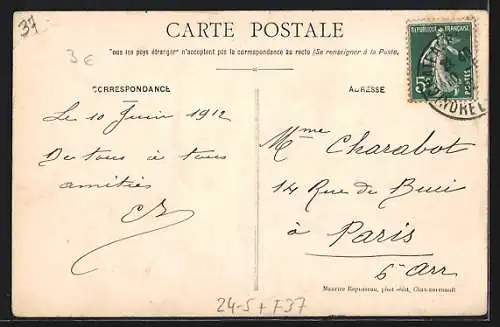 37
3 €
CARTE POSTALE
Tous les pays étranger n'acceptent pas la correspondance au recto (Se renseigner à la Poste.
CORRESPONDANCE
ADRESSE
REPUBLIQUE FRANÇAISE
5
POSTES
INDRE
Le 10 Juin 1912
De tous à tous
amitiés
Mme Charabot
14 Rue de Buci
à Paris
6e Arr
Maurice phot édit,
24-5 + F37